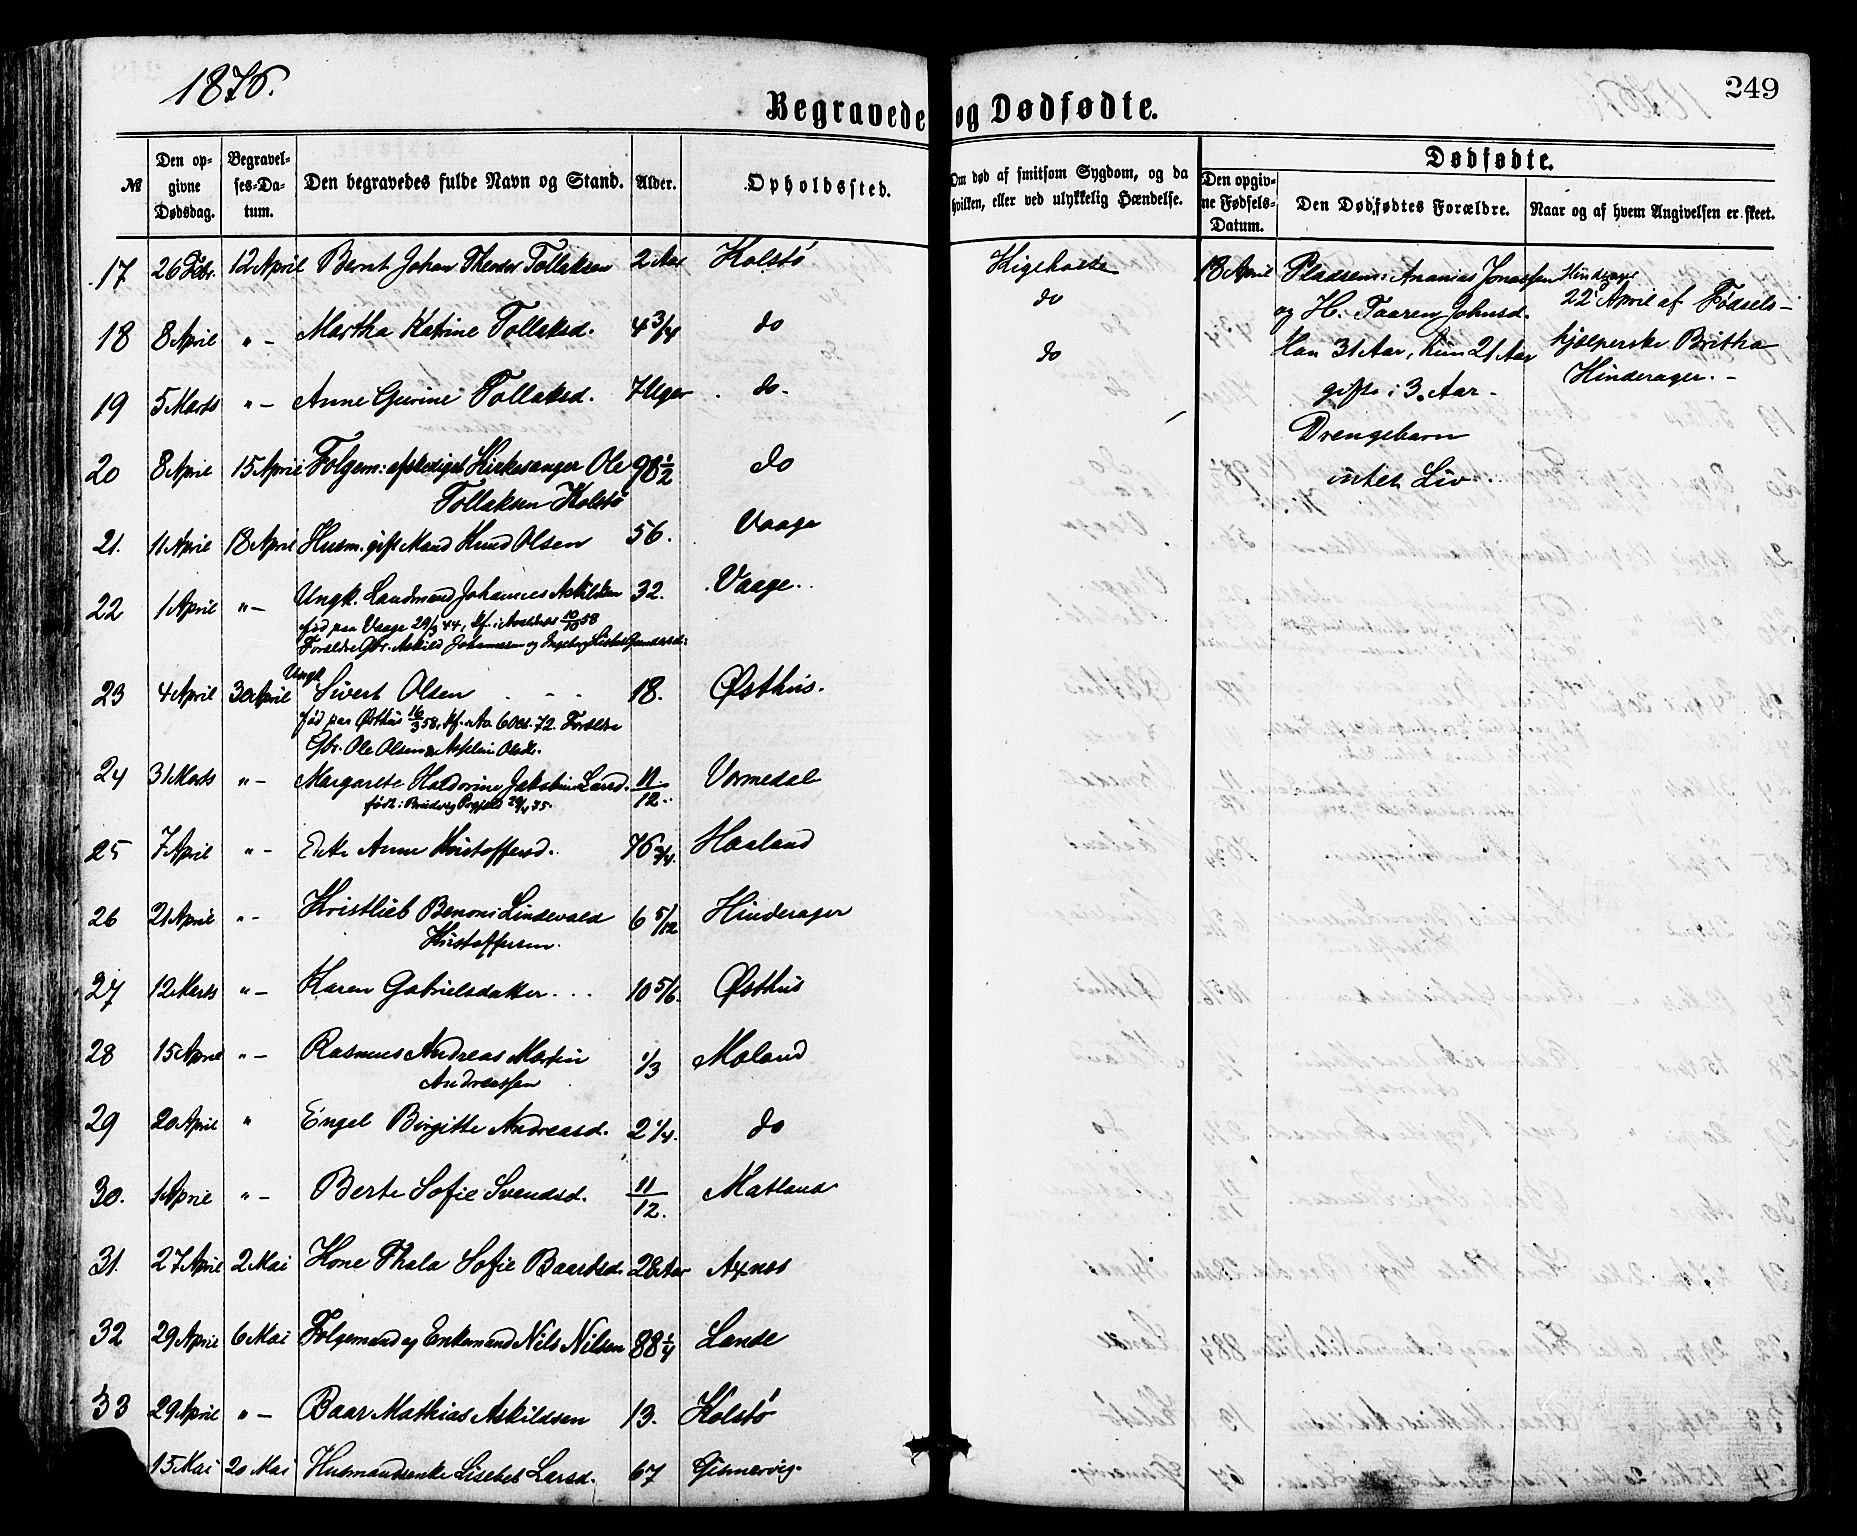 1876.
249
Begravede og Dødfødte.
№
Den opgivne Dødsdag.
Begravelses-Datum.
Den begravedes fulde Navn og Stand.
Alder.
Opholdssted.
Om død af smitsom Sygdom, og da hvilken, eller ved ulykkelig Hændelse.
Dødfødte.
Den opgivne Fødsels-Datum.
Den Dødfødtes Forældre.
Naar og af hvem Angivelsen er skeet.
17 26 Febr. 12 April Bernt Johan Theodor Tollaksen 2 Aar Kolstø Kighoste
18 8 April "– Martha Katrine Tollaksd. 4 3/4 do do
19 5 Marts "– Anne Gurine Tollaksd. 7 Uger do. do
20 8 April 15 April Folgem: afskediget Kirkesanger Ole 98 1/2 do
Tollaksen Kolstø
21. 11 April 18 April Husm. gift Mand Knud Olsen 56. Vaage
22 1 April "– Ungk. Landmand Johannes Askildsen 32. Vaage.
fød paa Vaage 29/9 44, kf. i Avaldsnes 10/10 58
Forældre Gbr. Askild Johannesen og Ingeborg Lisbet Gundersd:
23 4 April 30 April Ungk. Sivert Olsen 18. Østhus.
fød paa Østhus 16/3 58, kf. i Av. 6 Oct. 72. Forældre
Gbr. Ole Olsen & Asselin Olsdr.
24 31 Marts "– Margarete Haldorine Jakobine Larsd. 11/12. Vormedal
født i 29/4 75.
25 7 April "– Enke Anne Kristoffersd. 76 3/4. Haaland
26 21 April "– Kristlieb Benoni Lindevald 6 5/12 Hinderager
Kristoffersen.
27 12 Marts "– Karen Gabrielsdatter... 10 5/6. Østhus
28 15 April "– Rasmus Andreas Martin 1/3 Moland
Andreassen
29 20 April " Engel Birgitte Andreasd. 2 1/4. do
30. 1 April "– Berte Sofie Svendsd. 11/12. Matland
31. 27 April 2 Mai Kone Thala Sofie Baardsd. 28 Aar Axnes
32 29 April 6 Mai Folgemand og Enkemand Nils Nilsen 88 1/4 Lande
33 29 April "– Baar Mathias Askildsen 13. Kolstø
15 Mai 20 Mai Husmandsenke Lisebet Larsd. 67 Gismervig.
18 April
Pladsem: Ananias Jonassen
og H. Taaren Johnsd.
Han 31 Aar, hun 21 Aar
gifte i 3. Aar.
Drengebarn
intet Liv.
Hinderager
22 April af Fødsels-
hjælperske Britha
Hinderager.–